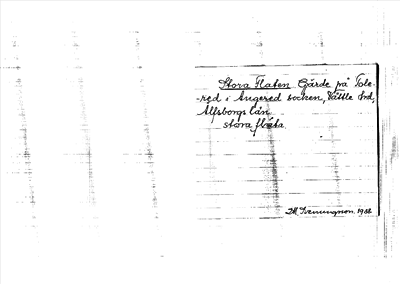 Stora Flaten Gärde på Tole-
-red i Angered socken, Vättle hrd,
Älfsborgs län.
stora flata.